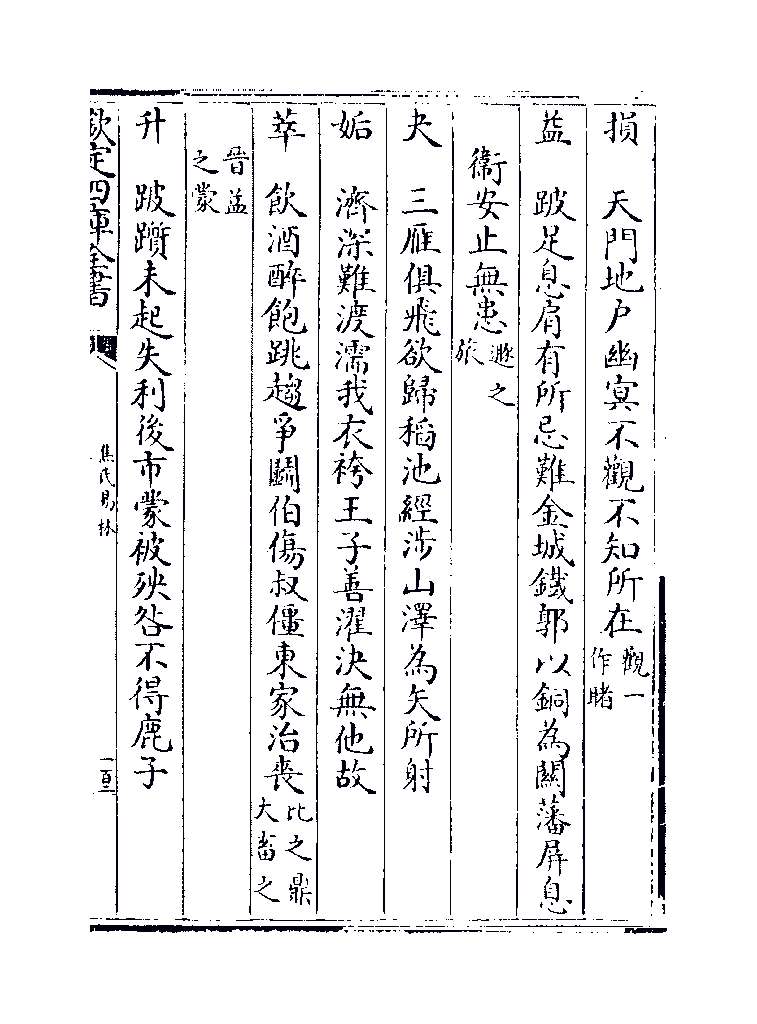 損　天門地户幽冥不觀不知所在觀一作睹
益　跛足息肩有所忌難金城鐵郭以銅為闗藩屏息
衞安止無患遯之旅
夬　三雁俱飛欲歸稻池經涉山澤為矢所射
姤　濟深難渡濡我衣袴王子善濯決無他故
萃　飲酒醉飽跳趨爭鬭伯傷叔僵東家治喪比之鼎大畜之
晉益之蒙
升　跛躓未起失利後市蒙被殃咎不得鹿子
欽定四庫全書
焦氏易林
一百二